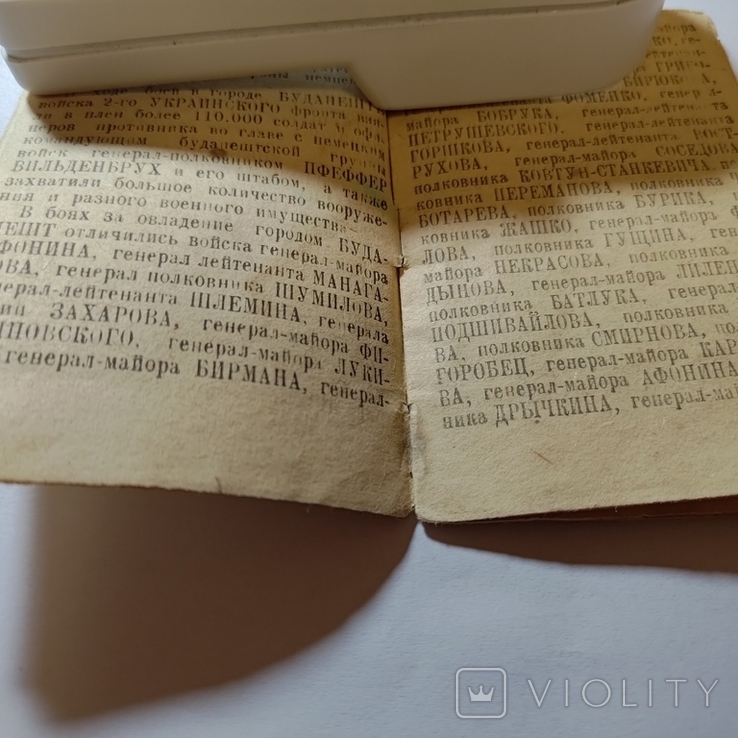 ходе боев в городе БУДАПЕШТ
войска 2-го УКРАИНСКОГО фронта взя-
ти в плен более 110.000 солдат и офи-
церов противника во главе с немецким
командующим будапештской группы
войск генерал-полковником ПФЕФФЕР
ВИЛЬДЕНБРУХ и его штабом, а также
захватили большое количество вооруже-
ния и разного военного имущества.
В боях за овладение городом БУДА-
ПЕШТ отличились войска генерал-майора
АФОНИНА, генерал лейтенанта МАНАГА-
ОВА, генерал полковника ШУМИЛОВА,
нерал-лейтенанта ШЛЕМИНА, генерала
ии ЗАХАРОВА, генерал-майора ФИ-
ИПОВСКОГО, генерал-майора ЛУКИ-
генерал-майора БИРМАНА, генерал-
майора
КО, гене-
ГРИГО
БИРЮКОВА,
лейтенанта ФОМЕНКО, генерал-
майора БОБРУКА, генерал-лейтенанта
ПЕТРУШЕВСКОГО, генерал-майора
ГОРШКОВА, генерал-лейтенанта РОСТ-
РУХОВА, генерал-майора СОСЕДОВА
полковника КОВТУН-СТАНКЕВИЧА, по
ковника ПЕРЕМАНОВА, полковника
БОТАРЕВА, полковника БУРИКА, п
ковника ЖАШКО, генерал-майора Ф
ЛОВА, полковника ГУЩИНА, генера
майора НЕКРАСОВА, полковника
ДЫНОВА, генерал-майора ЛИЛЕН
полковника БАТЛУКА, генерал-
ПОДШИВАЙЛОВА, полковника
ВА, полковника СМИРНОВА, пол
ГОРОБЕЦ, генерал-майора КАР
ВА, генерал-майора АФОНИНА
ника ДРЫЧКИНА, генерал-май
VIOLITY